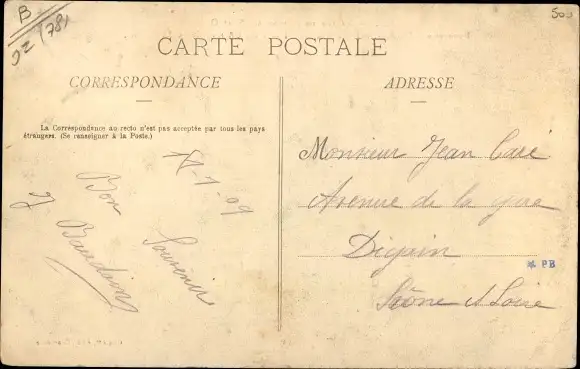 B
92 (78)
CARTE POSTALE
CORRESPONDANCE
La Correspondance au recto n'est pas acceptée par tous les pays
étrangers. (Se renseigner à la Poste.)
Bon
Souvenir
J Baudain
ADRESSE
Monsieur Jean Caré
Avenue de la gare
Digoin
Saône et Loire
PB